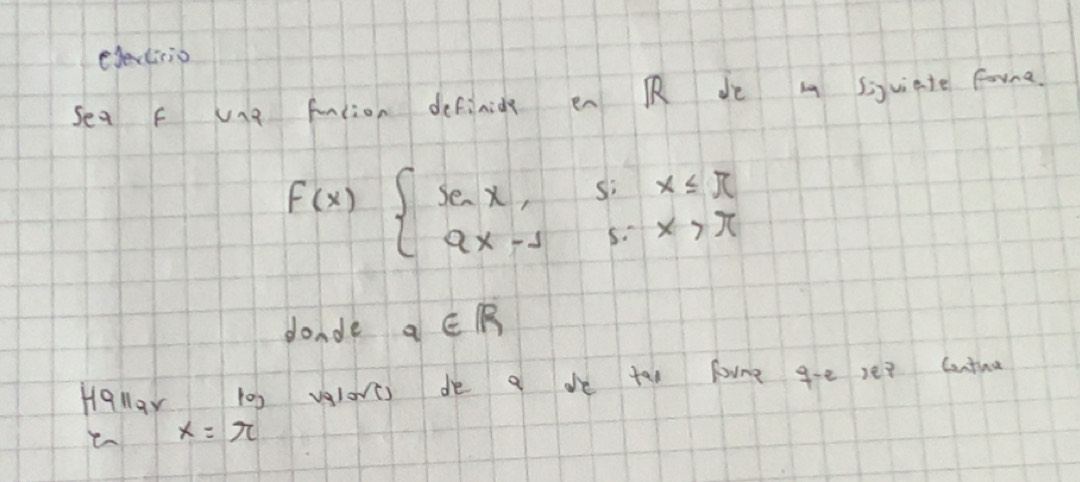 ejercicio
Sea F una funcion definida en ℝ de la siguiente forma.
F(x) { sen x, si x ≤ π
ax - 1 si x > π
donde a ∈ ℝ
Hallar los valores de a de tal forma que sea continua
en x = π